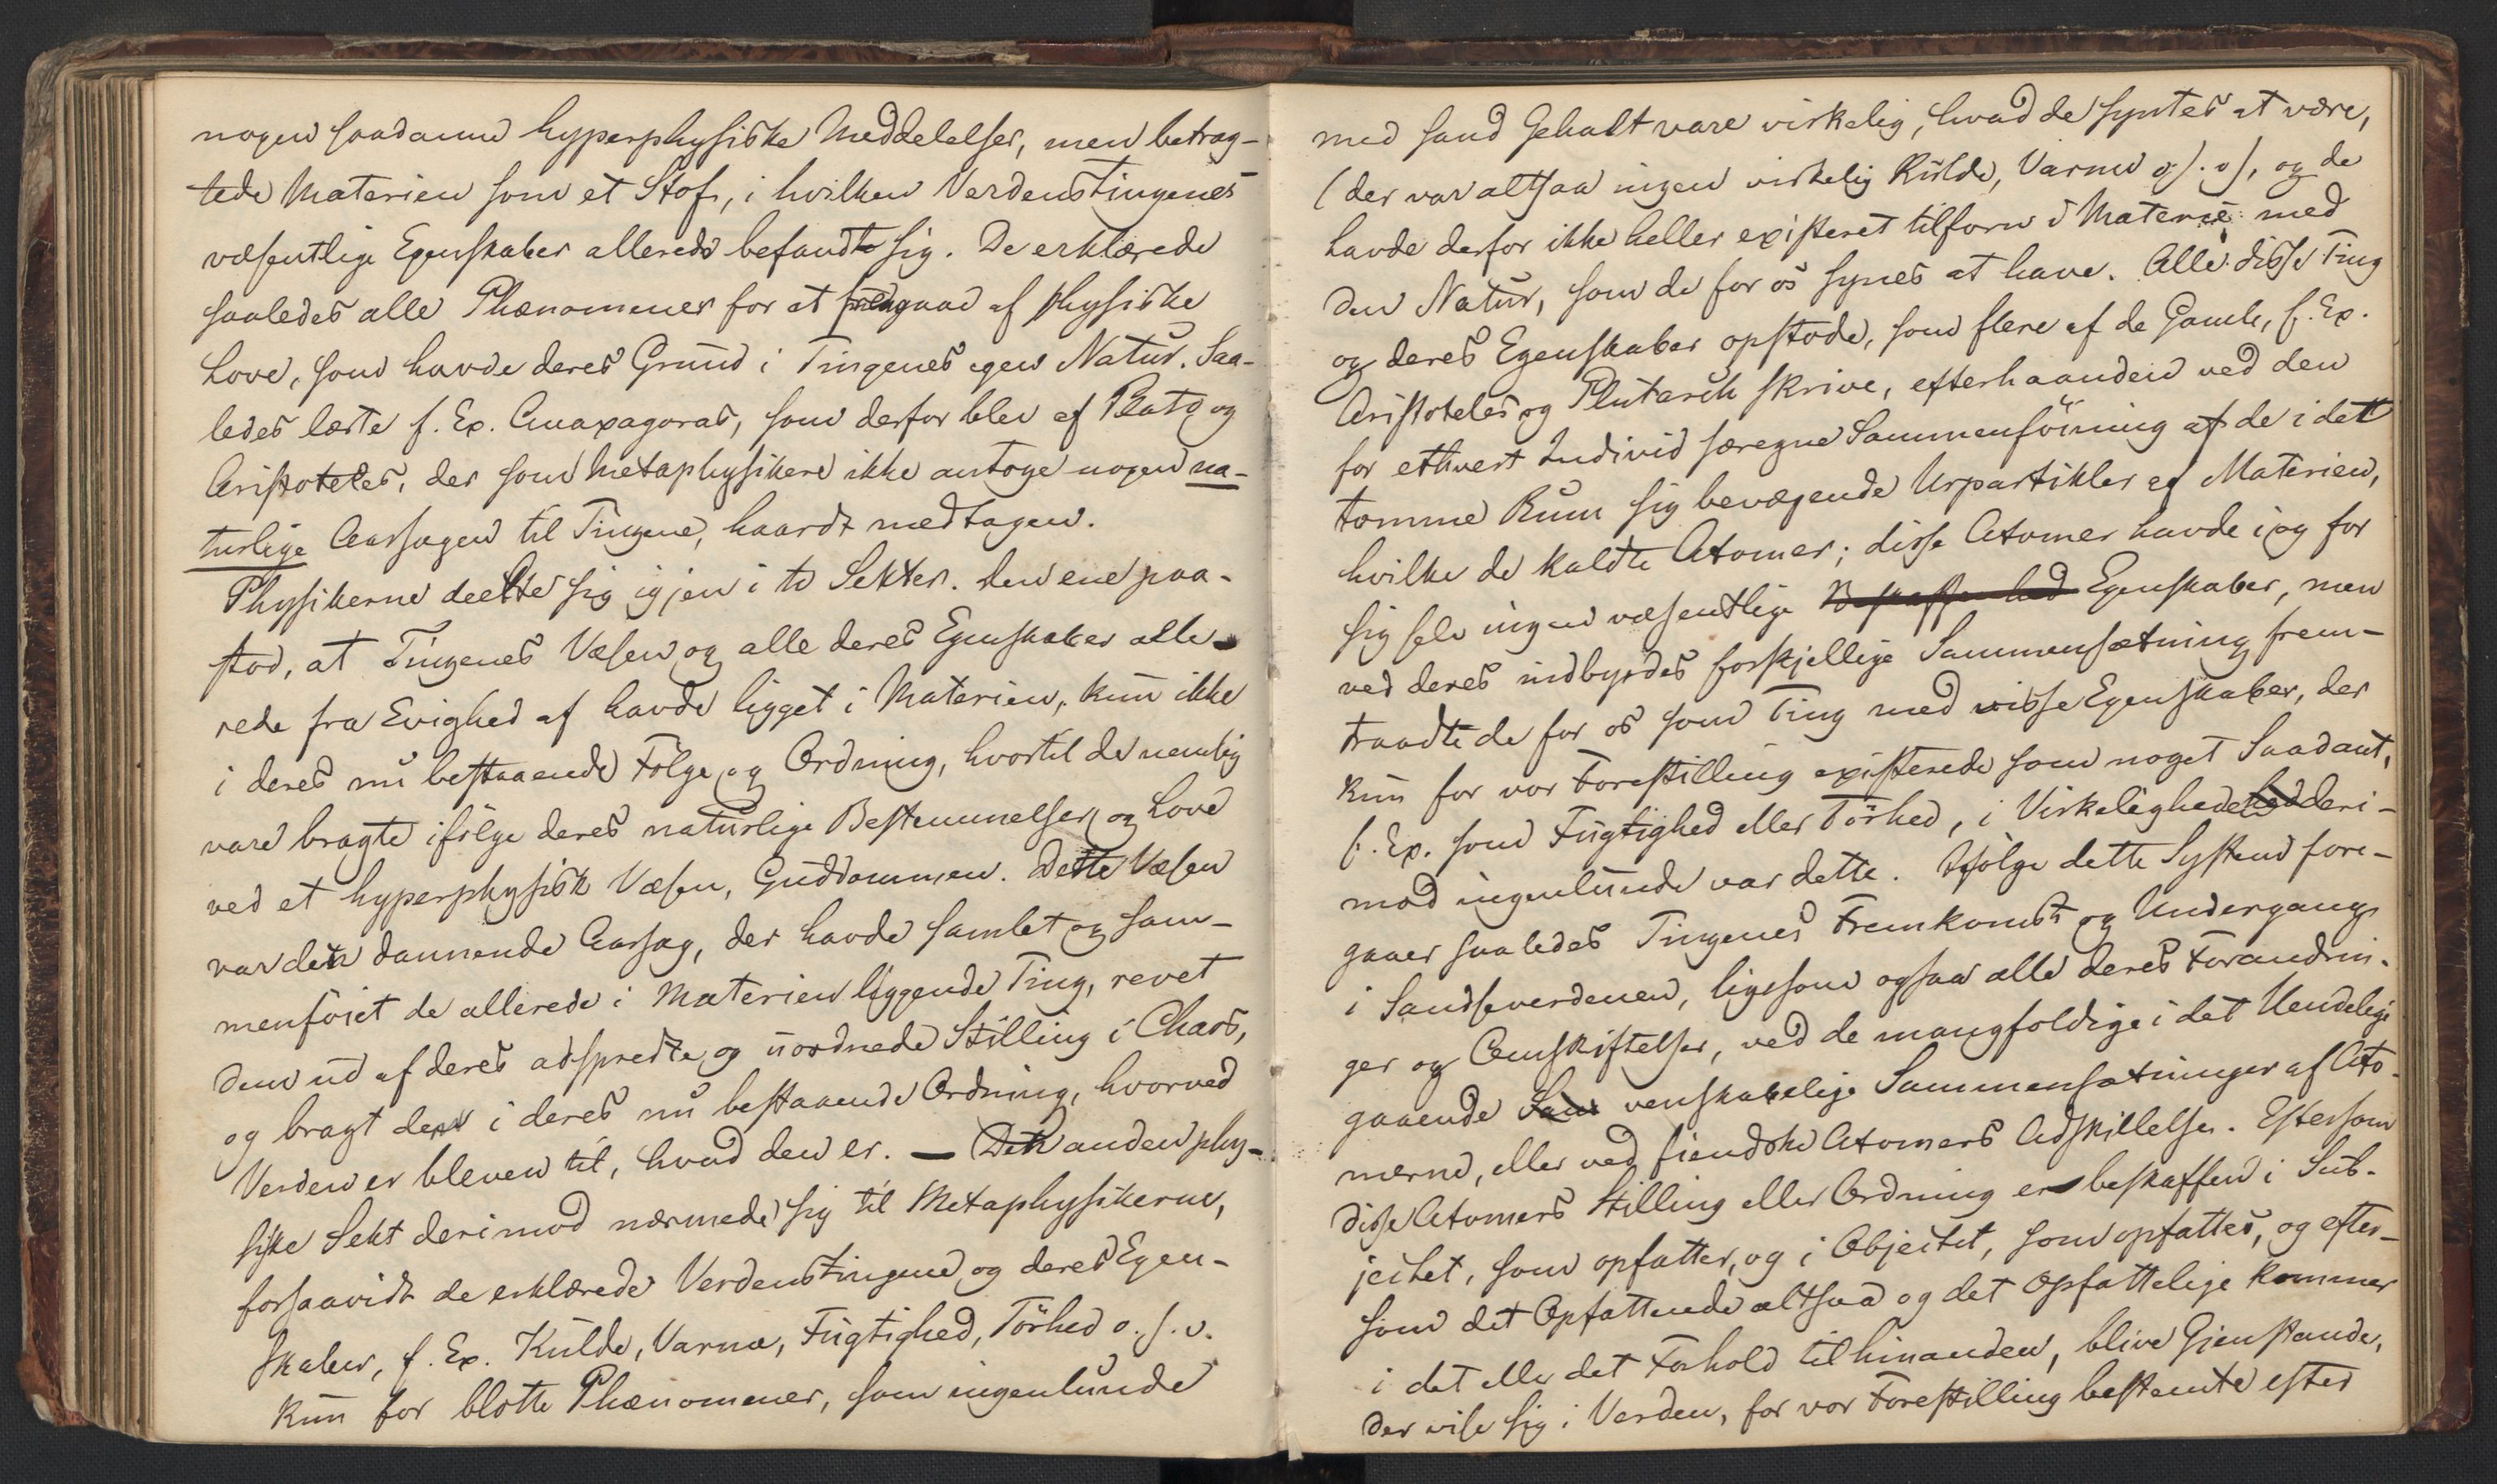 nogen saadanne hyperphysiske Meddelelser, men betrag-
tede Materien som et Stof, i hvilken Verdenstingenes
væsentlige Egenskaber allerede befandt sig. De erklærede
saaledes alle Phænomener for at fremgaae af physiske
Love, som havde deres Grund i Tingenes egen Natur. Saa-
ledes lærte f. Ex. Anaxagoras, som derfor blev af Plato og
Aristoteles, der som Metaphysikere ikke antoge nogen na-
turlige Aarsagen til Tingene, haardt medtagen.
Physikerne deelte sig igjen i to Sekter. Den ene paa-
stod, at Tingenes Væsen og alle deres Egenskaber alle-
rede fra Evighed af havde ligget i Materien, kun ikke
i deres nu bestaaende Følge og Ordning, hvortil de nemlig
vare bragte ifølge deres naturlige Bestemmelser og Love
ved et hyperphysisk Væsen, Guddommen. Dette Væsen
var den dannende Aarsag, der havde samlet og sam-
menføiet de allerede i Materien liggende Ting, revet
dem ud af deres adspredte og uordnede Stilling i Chaos,
og bragt dem i deres nu bestaaende Ordning, hvorved
Verden er bleven til, hvad den er. — Den anden phy-
siske Sekt derimod nærmede sig til Metaphysikerne,
forsaavidt de erklærede Verdenstingene og deres Egen-
skaber, f. Ex. Kulde, Varme, Fugtighed, Törhed o. s. v.
kun for blotte Phænomener, som ingenlunde
med sand Gehalt vare virkelig, hvad de syntes at være,
(der var altsaa ingen virkelig Kulde, Varme o. s. v), og de
havde derfor ikke heller existeret tilforn i Materie med
den Natur, som de for os synes at have. Alle disse Ting
og deres Egenskaber opstode, som flere af de Gamle, f. Ex.
Aristoteles og Plutarch skrive, efterhaanden ved den
for ethvert Individ særegne Sammenföining af de i det
tomme Rum sig bevægende Urpartikler af Materien,
hvilke de kaldte Atomer; disse Atomer havde i og for
sig selv ingen væsentlige Beskaffenhed Egenskaber, men
ved deres indbyrdes forskjellige Sammensætning frem-
traadte de for os som Ting med visse Egenskaber, der
kun for vor Forestilling existerede som noget Saadant,
f. Ex. som Fugtighed eller Törhed, i Virkeligheden deri-
mod ingenlunde var dette. Ifølge dette System fore-
gaaer saaledes Tingenes Fremkomst og Undergang
i Sandseverdenen, ligesom ogsaa alle deres Forandrin-
ger og Omskiftelser, ved de mangfoldige i det Uendelige
gaaende Sam venskabelige Sammensætninger af Ato-
merne, eller ved fiendske Atomers Adskillelse. Eftersom
disse Atomers Stilling eller Ordning er beskaffen i Sub-
jectet, som opfatter, og i Objectet, som opfattes, og efter-
som det Opfattende altsaa og det Opfattelige kommer
i det eller det Forhold til hinanden, blive Gjenstande,
der vise sig i Verden, for vor Forestilling bestemte efter